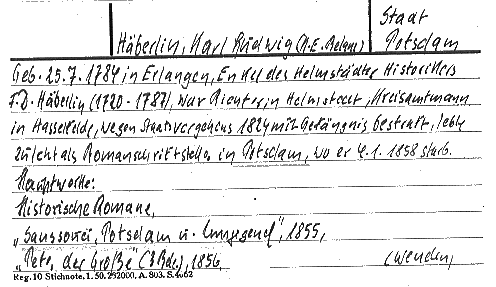 Stadt
Häberlin, Karl Ludwig (H. E. Belani) Potsdam
Geb. 25.7.1784 in Erlangen, Enkel des Helmstädter Historikers
F.D. Häberlin (1720 - 1787), war Richter in Helmstedt, Kreisamtmann
in Hasselfelde, wegen Staatsvergehens 1824 mit Gefängnis bestraft, lebte
zuletzt als Romanschriftsteller in Potsdam, wo er 4.1.1858 starb.
Hauptwerke:
Historische Romane,
„Sanssouci, Potsdam u. Umgegend", 1855,
„Peter der Große" (3 Bde), 1856,
(Wenden)
Reg. 10 Stichnote, 1. 50. 292000. A. 803. S. 4062